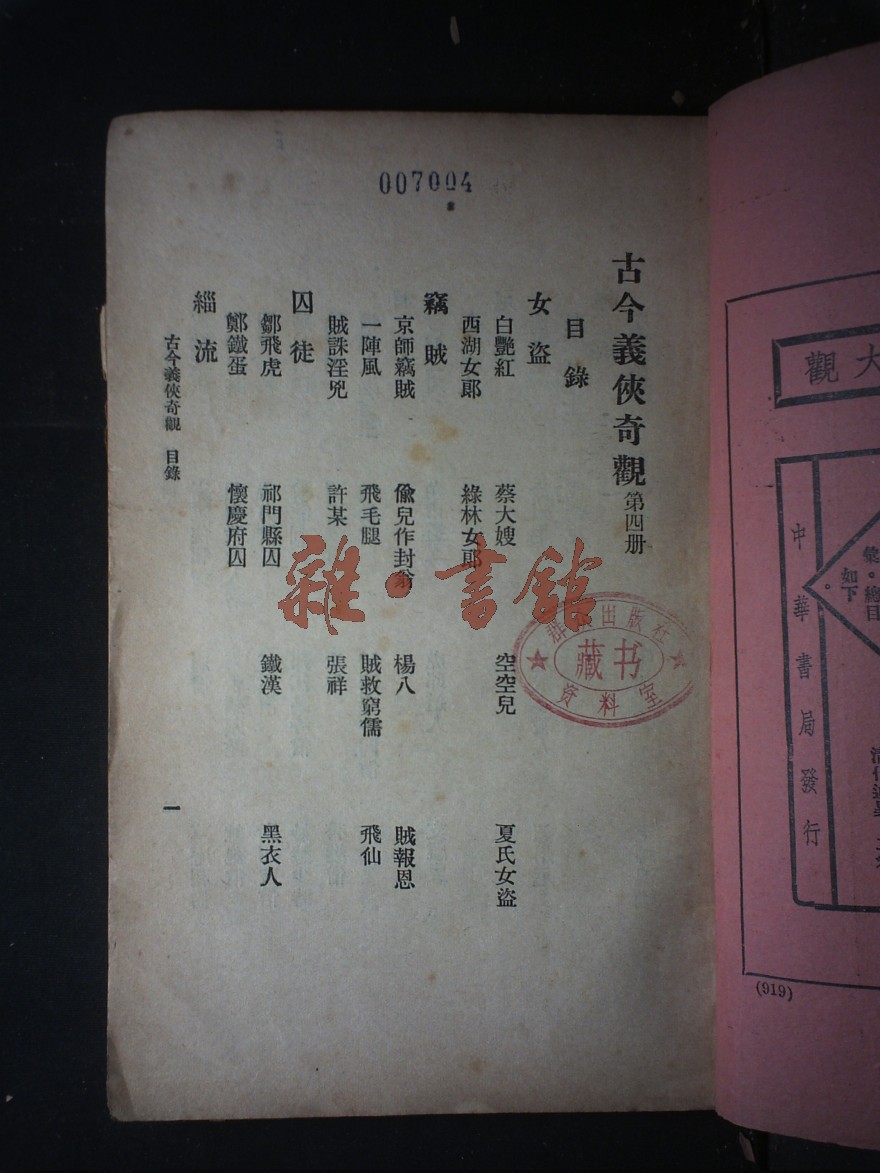 007004
古今義俠奇觀 第四册
目錄
女盜
白艷紅 蔡大嫂 空空兒 夏氏女盜
西湖女郎 綠林女郎
竊賊
京師竊賊 偸兒作封翁 楊八 賊報恩
一陣風 飛毛腿 賊救窮儒 飛仙
賊誅淫兇 許某 張祥
囚徒
鄒飛虎 祁門縣囚 鐵漢 黑衣人
鄭鐵蛋 懷慶府囚
緇流
古今義俠奇觀 目錄
一
雜·書館
出版社
藏书
资料室
大觀
總目
如下
中華書局發行
(919)